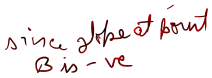 since slope at point
B is -ve